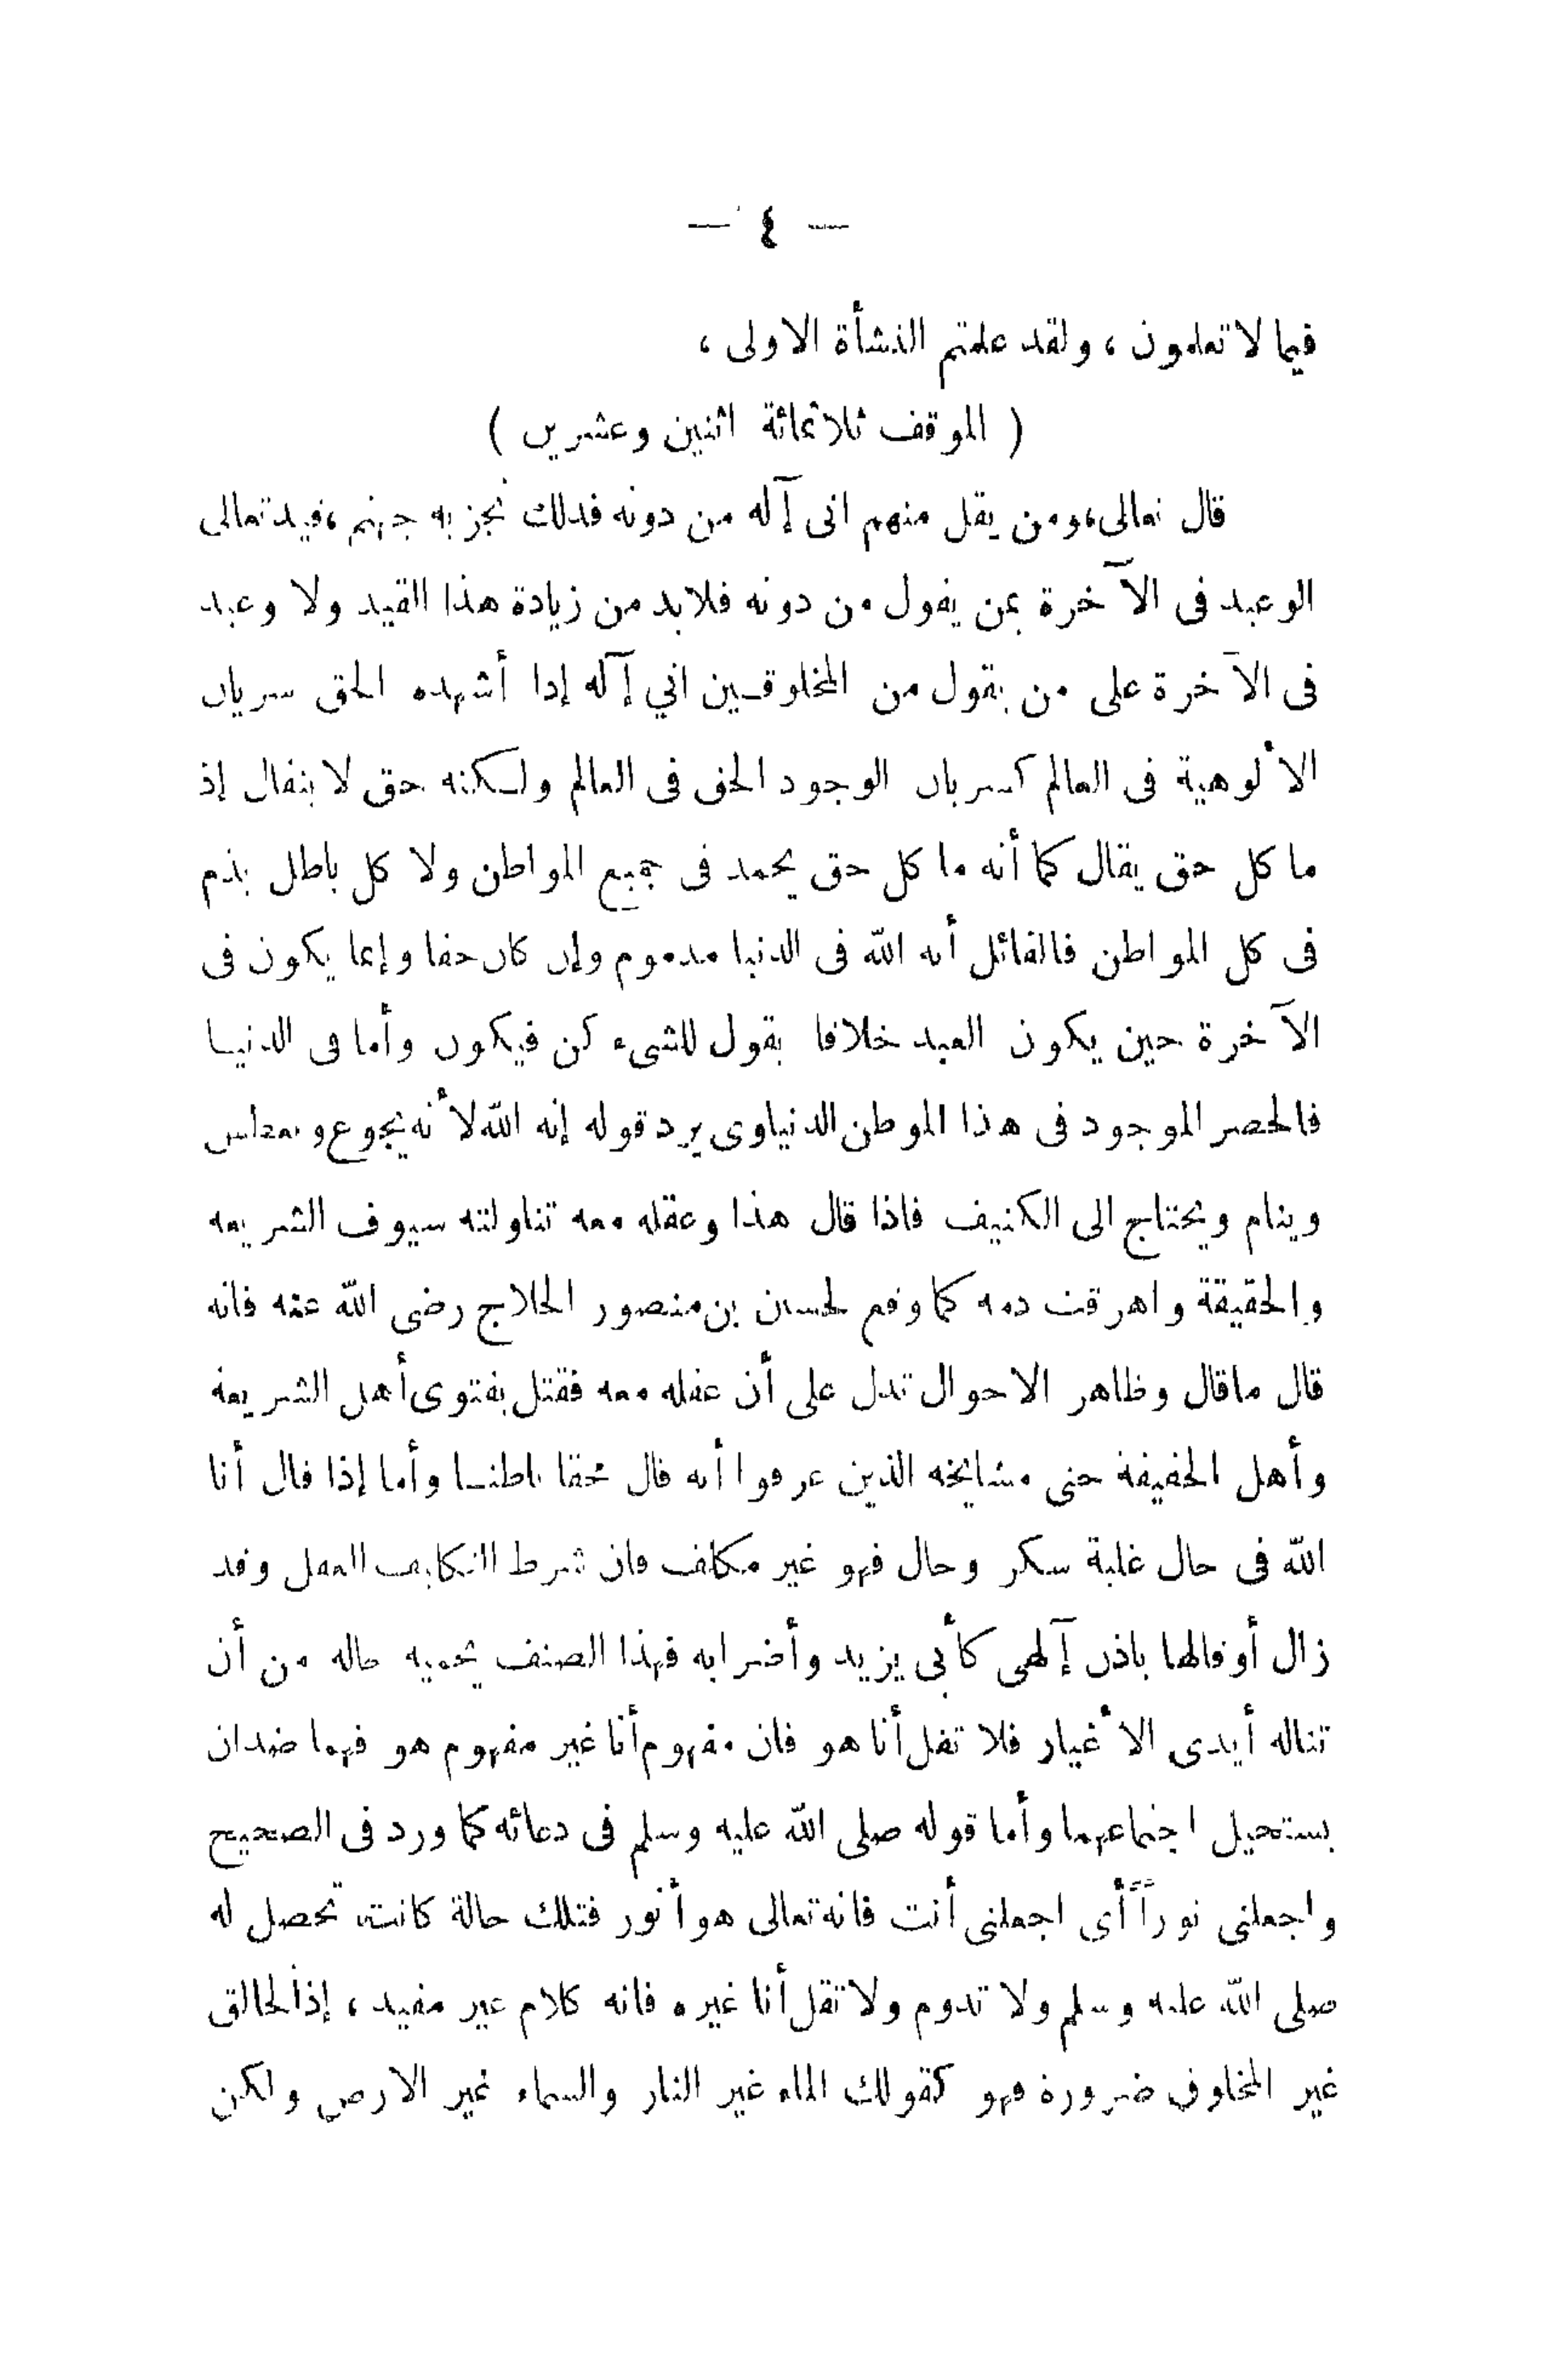 — ٤ —
فيما لا تعلمون ، ولقد علمتم النشأة الاولى ،
( الموقف ثلاثمائة اثنين وعشرين )
قال تعالى ، ومن يقل منهم انى آله من دونه فذلك نجزيه جهنم ، قيد تعالى
الوعيد فى الآخرة بمن يقول من دونه فلابد من زيادة هذا القيد ولا وعيد
فى الآخرة على من يقول من المخلوقـين اني آله إذا أشهده الحق سريان
الألوهية فى العالم كسريان الوجود الحق فى العالم ولكنه حق لا يقال إذ
ما كل حق يقال كما أنه ما كل حق يحمد فى جميع المواطن ولا كل باطل يذم
فى كل المواطن فالقائل أنه الله فى الدنيا مذموم وإن كان حقا وإنما يكون فى
الآخرة حين يكون العبد خلاقا يقول للشىء كن فيكون وأما فى الدنيـا
فالحصر الموجود فى هذا الموطن الدنياوى يرد قوله إنه الله لأنه يجوع و
وينام ويحتاج الى الكنيف فاذا قال هذا وعقله معه تناولته سيوف الشريعه
والحقيقة واهرقت دمه كما وقع لحسين بن منصور الحلاج رضى الله عنه فانه
قال ماقال وظاهر الاحوال تدل على أن عقله معه فقتل بفتوى أهل الشريعة
وأهل الحقيقة حتى مشايخه الذين عرفوا أنه قال محقا باطنـا وأما إذا قال أنا
الله فى حال غلبة سكر وحال فهو غير مكلف فان شرط التكليف العقل وقد
زال أو قالها باذن آلهى كأبى يزيد وأضرابه فهذا الصنف يحميه حاله من أن
تناله أيدى الأغيار فلا تقل أنا هو فان مفهوم أنا غير مفهوم هو فهما ضدان
يستحيل اجتماعهما وأما قوله صلى الله عليه وسلم فى دعائه كما ورد فى الصحيح
واجعلنى نوراً أى اجعلنى أنت فانه تعالى هو أنور فتلك حالة كانت تحصل له
صلى الله عليه وسلم ولا تدوم ولا تقل أنا غيره فانه كلام غير مفيد ، إذ الخالق
غير المخلوق ضرورة فهو كقولك الماء غير النار والسماء غير الارض ولكن